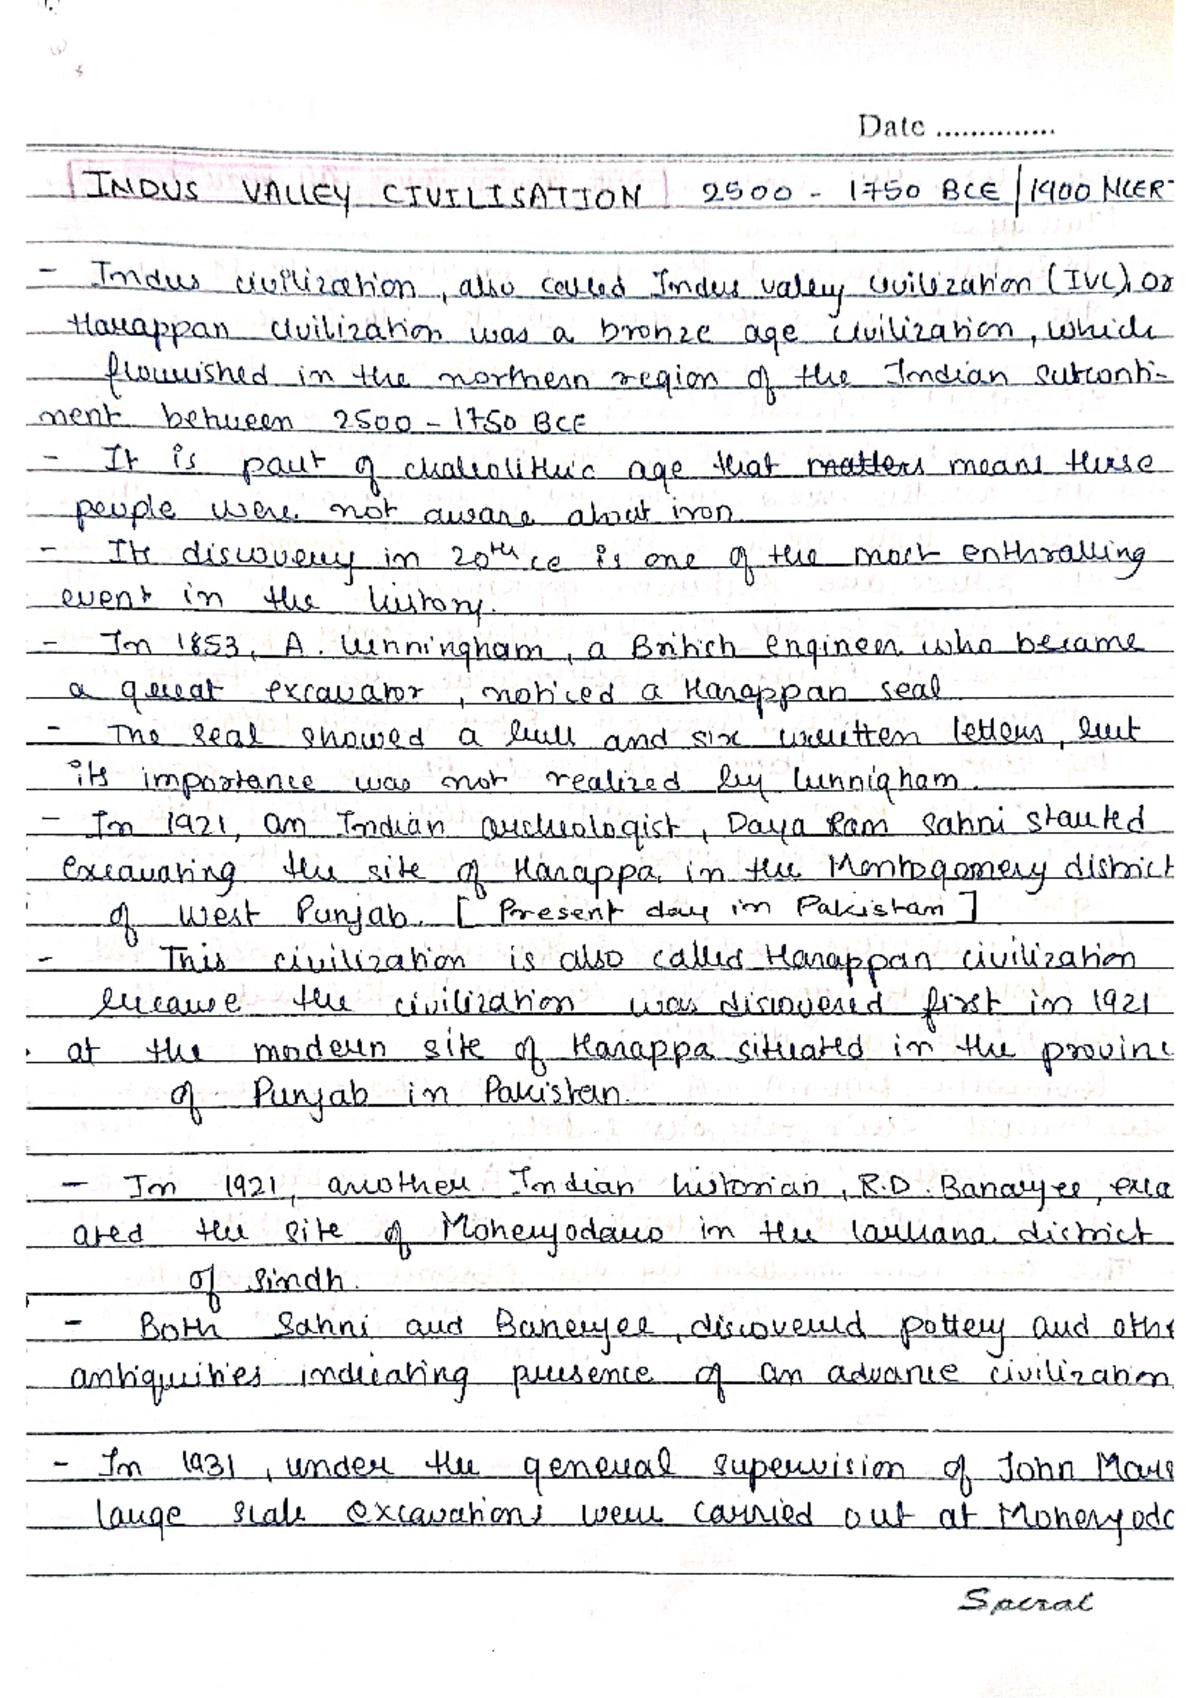 Date ..............
INDUS VALLEY CIVILISATION 2500 - 1750 BCE / 1900 NCERT
- Indus civilization, also called Indus valley civilization (IVC), or
Harappan civilization was a bronze age civilization, which
flourished in the northern region of the Indian subconti-
nent between 2500 - 1750 BCE
- It is part of chalcolithic age that matters means these
people were not aware about iron
- Its discovery in 20th ce is one of the most enthralling
event in the history.
- In 1853, A. Cunningham, a British engineer who became
a great excavator, noticed a Harappan seal
- The seal showed a bull and six written letters, but
its importance was not realized by Cunnigham
- In 1921, an Indian archeologist, Daya Ram Sahni started
excavating the site of Harappa in the Montogomery district
of West Punjab. [Present day in Pakistan]
- This civilization is also called Harappan civilization
because the civilization was discovered first in 1921
at the modern site of Harappa situated in the provinc
of Punjab in Pakistan.
- In 1921, another Indian historian, R.D. Banerjee, exca
ated the site of Mohenjodaro in the larkana district
of Sindh.
- Both Sahni and Banerjee, discovered pottery and othe
antiquities indicating presence of an advance civilization
- In 1931, under the general supervision of John Mars
large scale excavations were carried out at Mohenjoda
Spiral